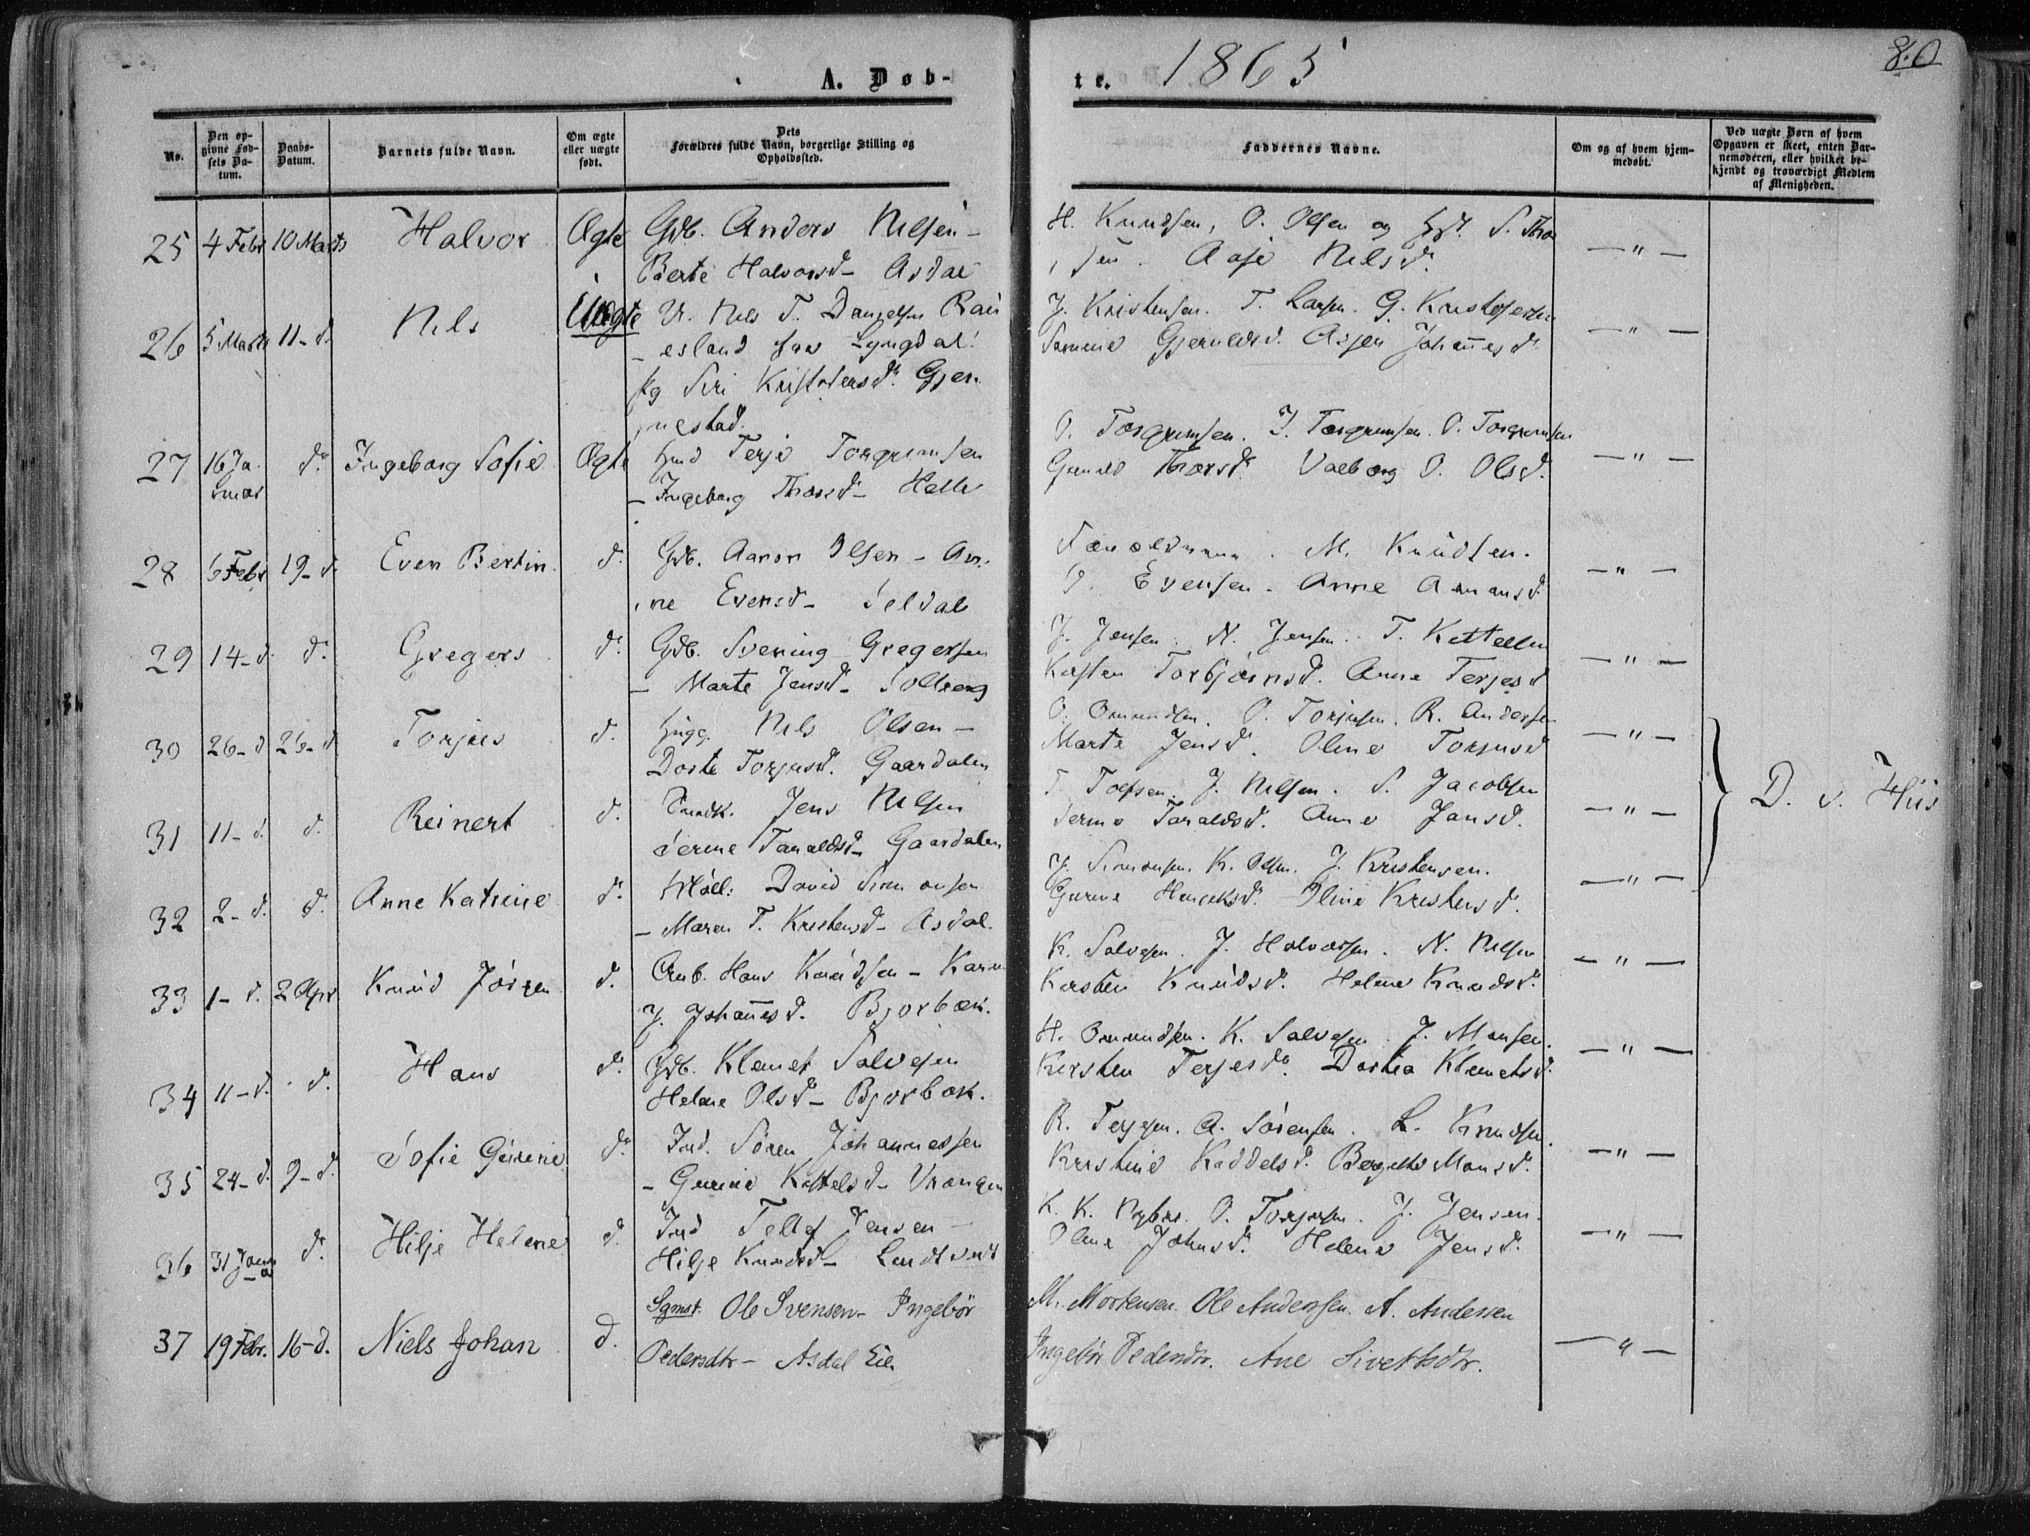 A. Døb-
te. 1865
80
No.
Den op-
givne Fød-
sels Da-
tum.
Daabs-
Datum.
Barnets fulde Navn.
Om ægte
eller uægte
født.
Dets
Forældres fulde Navn, borgerlige Stilling og
Opholdssted.
Faddernes Navne.
Om og af hvem hjem-
medøbt.
Ved uægte Børn af hvem
Opgaven er skeet, enten Bar-
nemoderen, eller hvilket be-
kjendt og troværdigt Medlem
af Menigheden.
25 4 Febr 10 Marts Halvor Ægte Gdb. Anders Nilsen -
Berte Halvorsd - Asdal
H. Knudsen, O. Olsen og S. Thor
sen. Aase Nilsd. — " —
26 5 Marts 11 - d. Nils Uægte U. Nils T. Danielsen Røi
- esland fra Lyngdal
Pg Siri Kristofersd. Gjen
nestad.
J. Kristensen. T. Larsen. G. Kristofersen
Gjeruldsd. Johannesd. — " —
27 16 Ja
nuar d. Ingeborg Sofie Ægte Terje Torgrimsen
- Ingeborg Thorsd - Helle
O. Torgrimsen. T. Torgrimsen. O. Torgrimsen
Gunild Thorsd. Valborg O. Olsd. — " —
28 6 Febr 19 - d. Even Bertin d. Gdb. Aaron Olsen - An-
ne Evensd - Seldal
M. Knudsen.
Evensen. Anne Amansd — " —
29 14 - d. d. Gregers d. Gdb. Svening Gregersen
- Marte Jensd - Solberg
J. Jensen. N. Jensen. T. Kittelsen
Kirsten Torbjørnsd. Anne Terjesd — " —
30 26 - d 26 - d Torjus d. Nils Olsen -
Dorte Torjusd. Gaardalen
O. Omundsen. O. Torjusen. R. Andersen
Marte Jensd. Oline Torjusd — " —
31 11 - d. d. Reinert d. Jens Nilsen
Serine Taraldsd - Gaardalen
T. Tolfsen. J. Nilsen. S. Jacobsen
Serine Taraldsd. Anne Jansd. — " —
D. v. Hus
32 2 - d. d. Anne Katrine d. Møll. David Simonsen
- Maren T. Kristensd - Asdal.
J. Simonsen. K. Olsen. J. Kristensen.
Gurine Henriksd. Oline Kristensd. — " —
33 1 - d. 2 Apr Knud Jørgen d. Arb. Hans Knudsen - Karen
J. Johannesd. Bjorbæk.
K. Salvesen. J. Halvorsen. N. Nilsen
Kirsten Knudsd. Helene Knudsd. — " —
34 11 - d. d. Hans d. Gdb. Klemet Salvesen
Helene Olsd - Bjorbæk.
H. Omundsen. K. Salvesen. J. Monsen.
Kirsten Terjesd. Dortea Klemetsd. — " —
35 24 - d. 9 - d. Sofie Gurine d. Ind. Søren Johannessen
- Gurine Kittelsd - Vrængen
R. Terjesen. A. Sørensen. L. Knudsen.
Kristine Kaddelsd. Bergitte Monsd. — " —
36 31 Janu
ar d. Hilje Helene d. Ind Tellef Jensen -
Hilje Knudsd -
K. K. Nybru. O. Torjusen. J. Jensen.
Oline Johnsd. Helene Jensd. — " —
37 19 Febr. 16 - d. Niels Johan d. Sgmst. Ole Svensen - Ingebør
Pedersdtr - Asdal Eie
M. Mortensen. Ole Anderssen. A. Andersen
Ingebør Pedersdtr. Ane Sivertsdtr. — " —